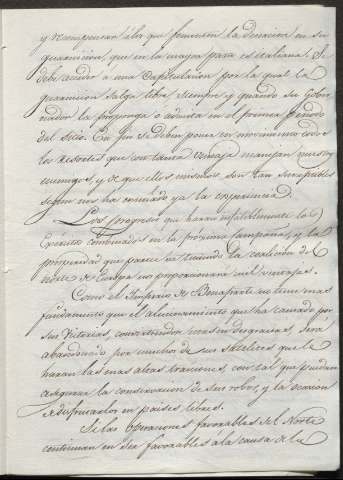 y recompensar á los que fomenten la desercion en su
guarnicion, que en la mayor parte es italiana. Se
debe acceder a una capitulacion por la qual la
guarnicion salga libre siempre y quando su Gober-
nador la proponga ó admita en el primer periodo
del sitio. En fin se deben poner en movimiento todos
los resortes que con tanta ventaja manejan nuestros
enemigos, y de que ellos mismos son tan susceptibles
segun nos ha enseñado ya la experiencia.
Los progresos que haran infaliblemente los
Exércitos combinados en la próxima campaña, y la
prosperidad que parece va teniendo la coalicion del
norte de Europa nos proporcionará mil ventajas.
Como el Imperio de Bonaparte no tiene mas
fundamento que el alucinamiento que ha causado por
sus victorias, convirtiendose estas en desgracias, será
abandonado por muchos de sus satelites que le
haran las mas altas traiciones, con tal que puedan
asegurar la conservacion de sus robos, y la ocasion
de disfrutarlos en paises libres.
Si las operaciones favorables del Norte
continuan en ser favorables a la causa de la